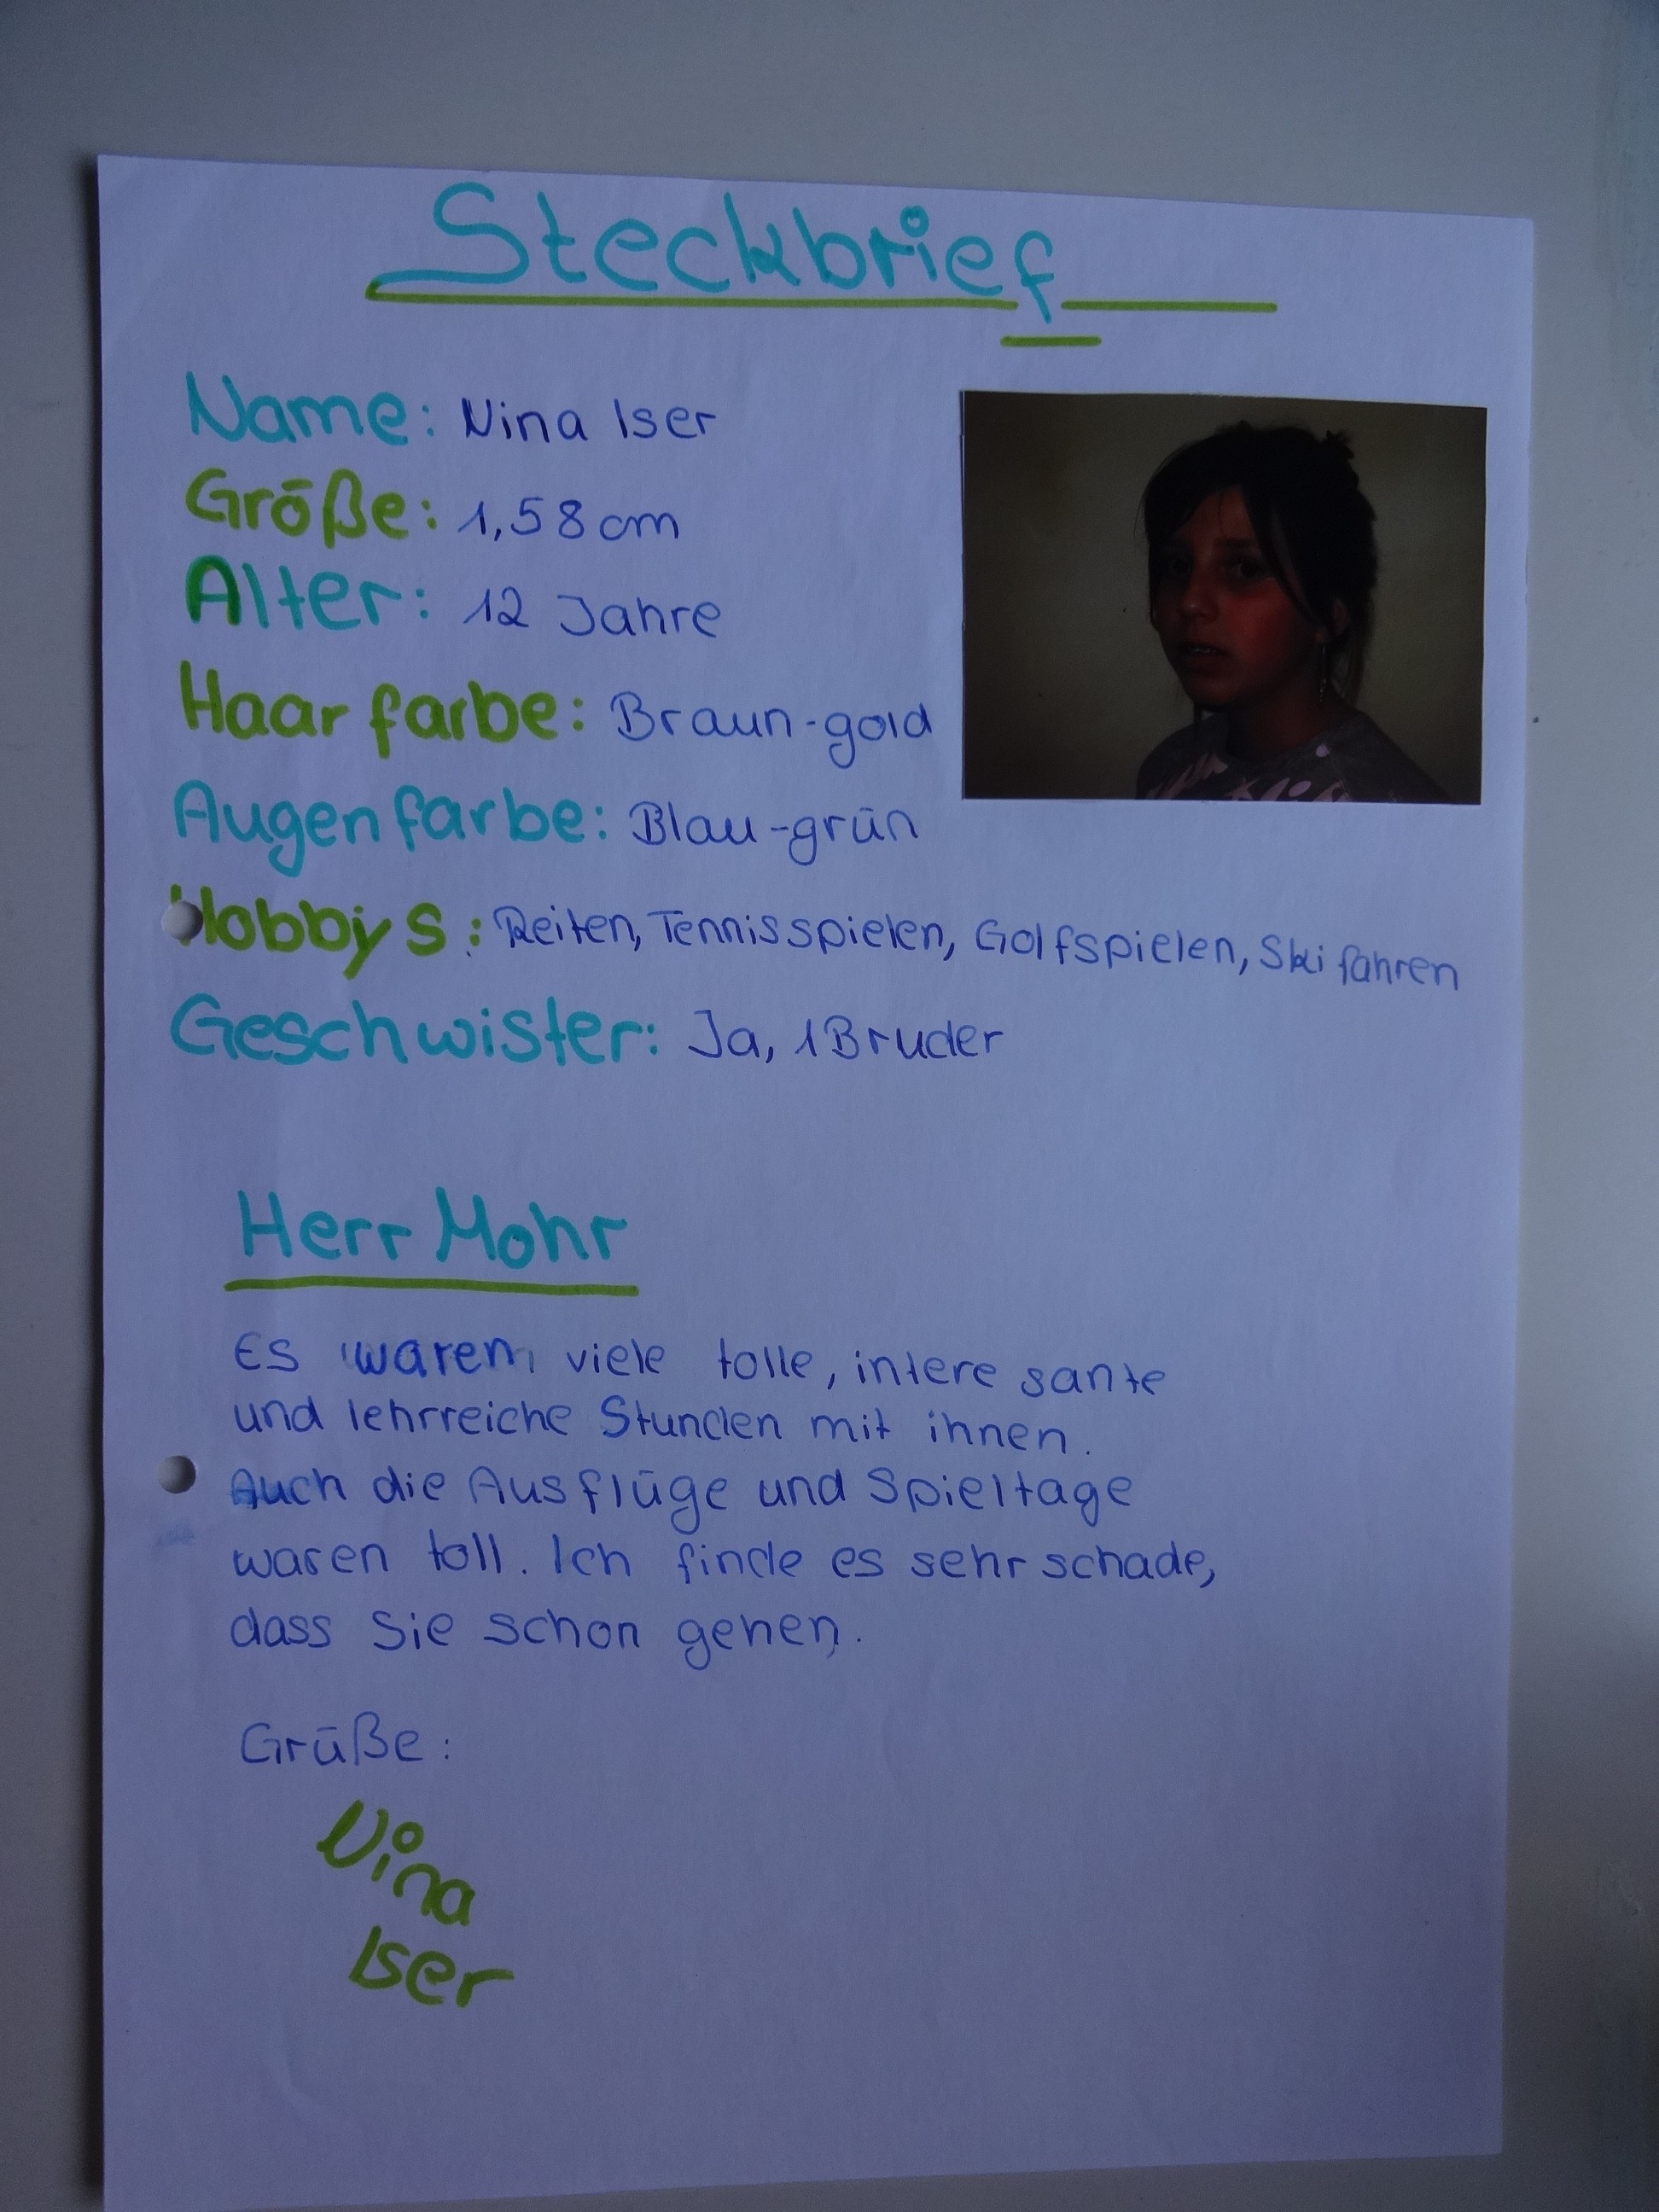 Steckbrief
Name: Nina Iser
Größe: 1,58 cm
Alter: 12 Jahre
Haarfarbe: Braun-gold
Augenfarbe: Blau-grün
Hobbys: Reiten, Tennisspielen, Golfspielen, Ski fahren
Geschwister: Ja, 1 Bruder
Herr Mohr
Es waren viele tolle, interesante
und lehrreiche Stunden mit ihnen.
Auch die Ausflüge und Spieltage
waren toll. Ich finde es sehr schade,
dass Sie schon gehen.
Grüße:
Nina
Iser